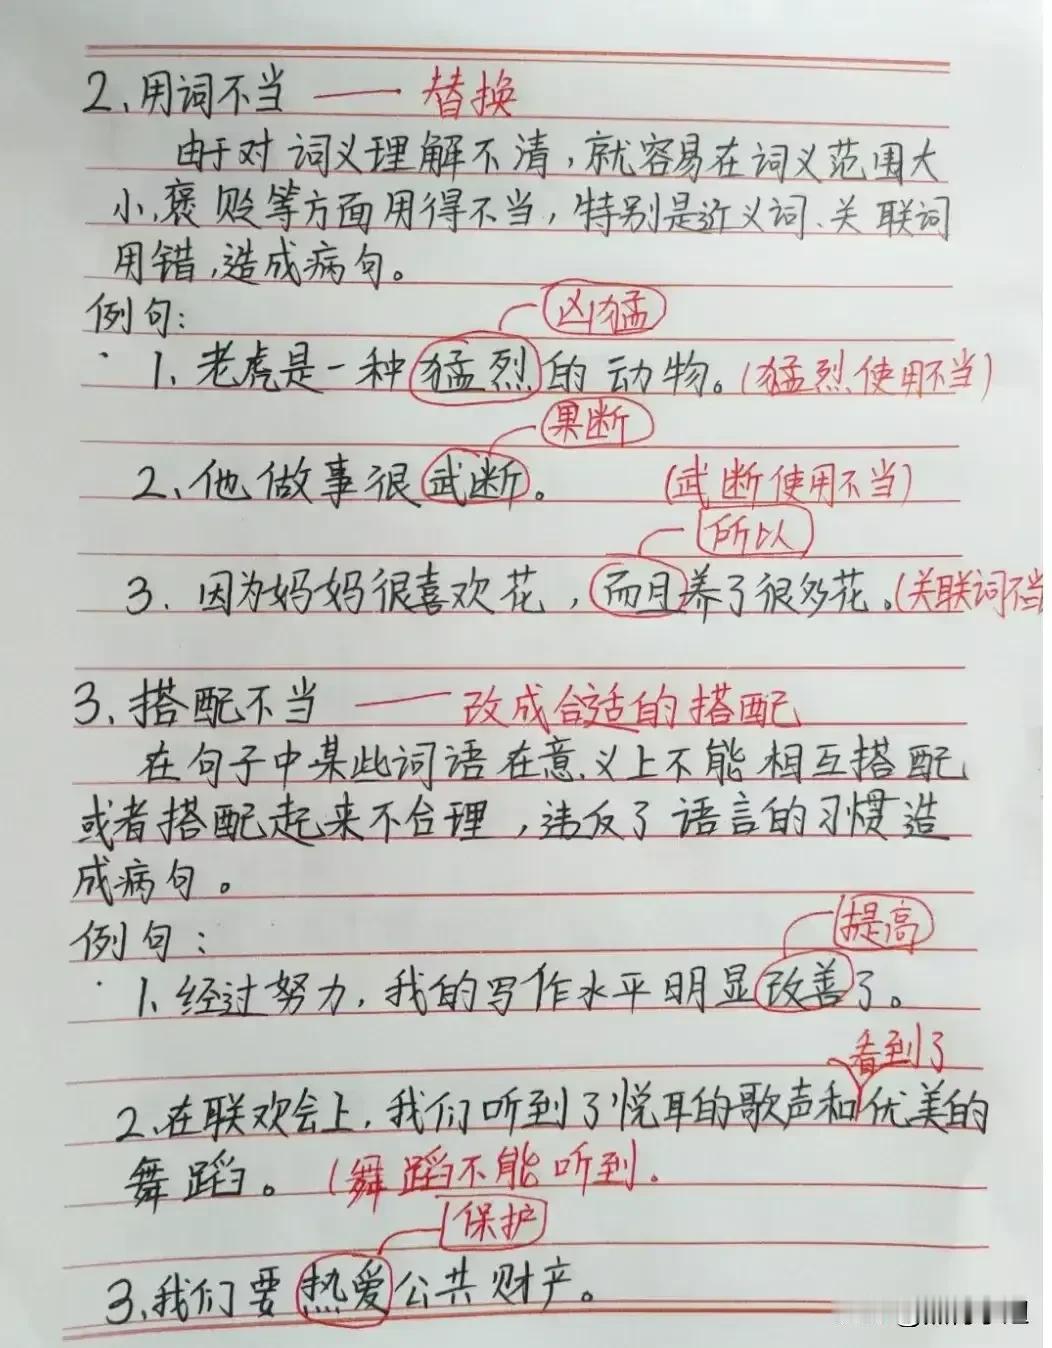 2、用词不当 —— 替换
由于对词义理解不清，就容易在词义范围大
小、褒贬等方面用得不当，特别是近义词、关联词
用错，造成病句。
例句：
凶猛
1、老虎是一种猛烈的动物。(猛烈使用不当)
果断
2、他做事很武断。 (武断使用不当)
所以
3. 因为妈妈很喜欢花，而且养了很多花。(关联词不当
3、搭配不当 —— 改成合适的搭配
在句子中某些词语在意义上不能相互搭配
或者搭配起来不合理，违反了语言的习惯造
成病句。
例句：
提高
1、经过努力，我的写作水平明显改善了。
看到了
2、在联欢会上，我们听到了悦耳的歌声和优美的
舞蹈。(舞蹈不能听到.
保护
3、我们要热爱公共财产。